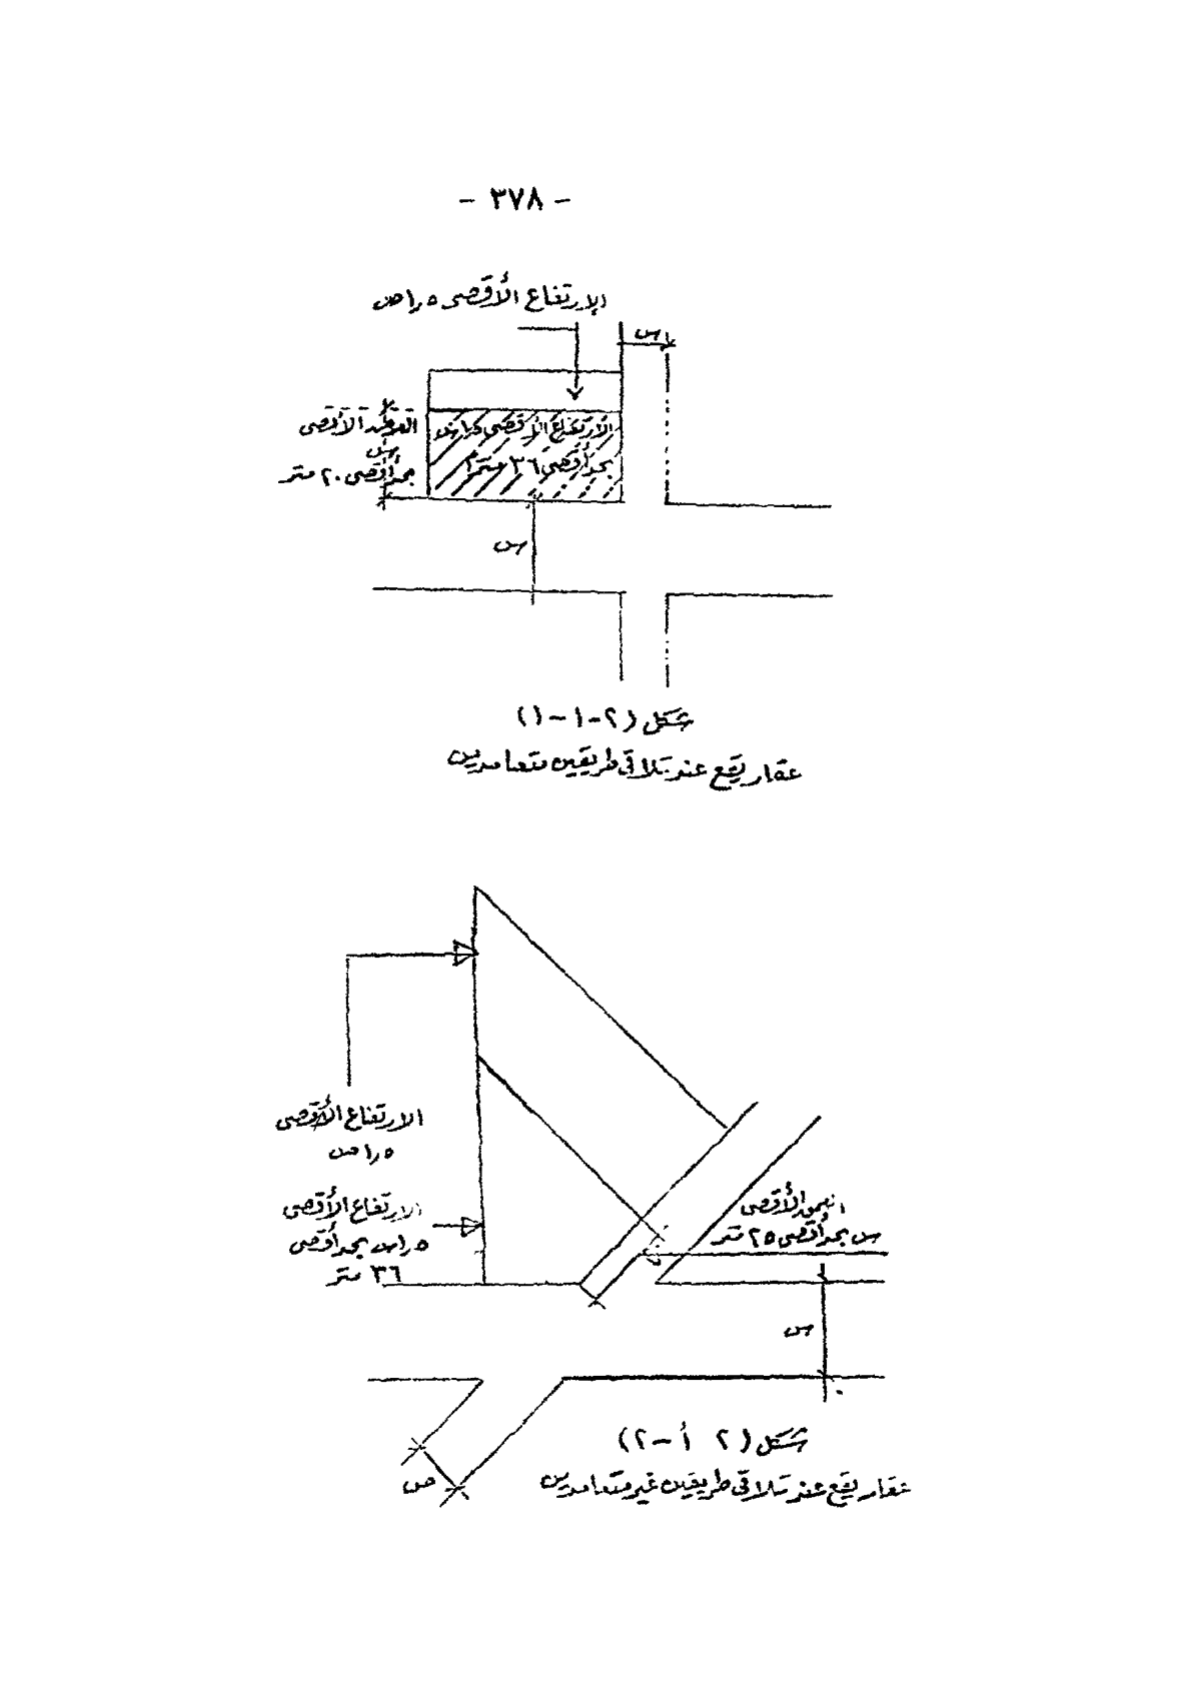 - ٣٧٨ -
الارتفاع الأقصى ٥ر١ ص
س
العمق الأقصى
س
بحد أقصى ٢٠ متر
الارتفاع الأقصى ٥ر١ س
بحد أقصى ٣٦ مترا
س
شكل (٢-١-١)
عقار يقع عند تلاقى طريقين متعامدين
الارتفاع الأقصى
٥ر١ ص
الارتفاع الأقصى
٥ر١ س بحد أقصى
٣٦ متر
العمق الأقصى
س بحد أقصى ٢٥ متر
س
ص
شكل (٢ أ-٢)
عقار يقع عند تلاقى طريقين غير متعامدين